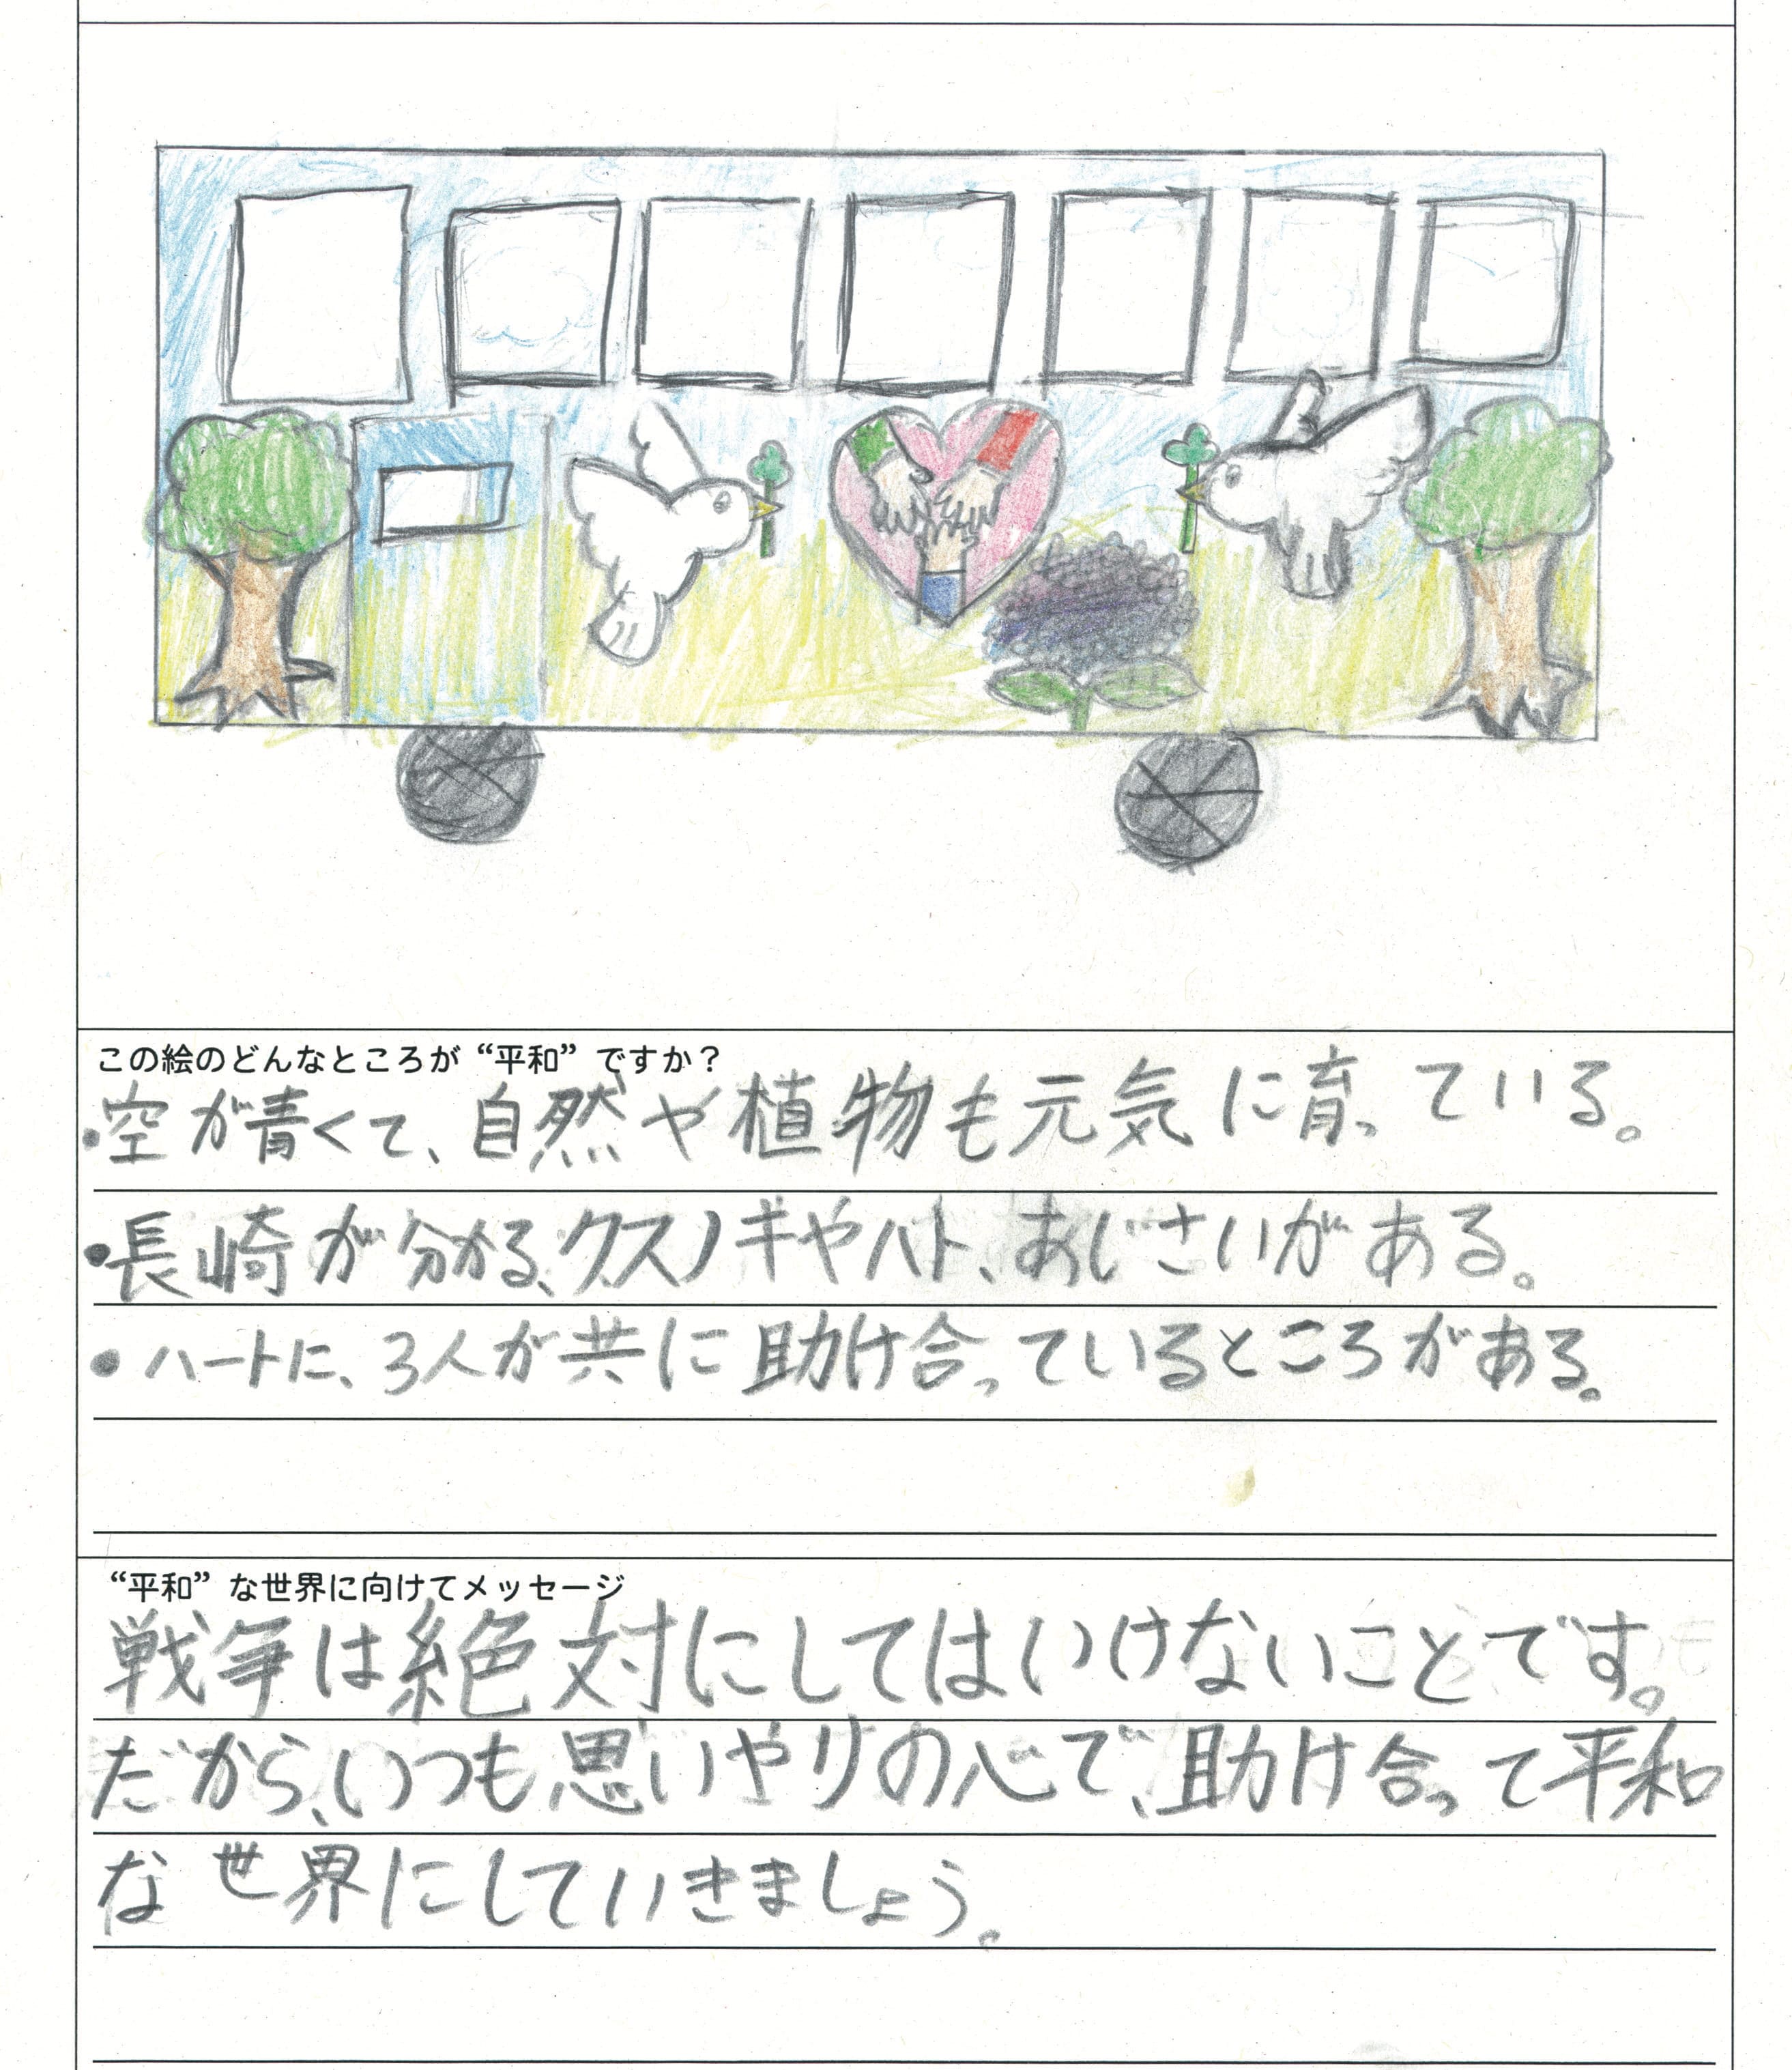 この絵のどんなところが“平和”ですか？
・空が青くて、自然や植物も元気に育っている。
・長崎が分かる、クスノキやハト、あじさいがある。
・ハートに、3人が共に助け合っているところがある。
“平和”な世界に向けてメッセージ
戦争は絶対にしてはいけないことです。
だから、いつも思いやりの心で、助け合って平和
な世界にしていきましょう。